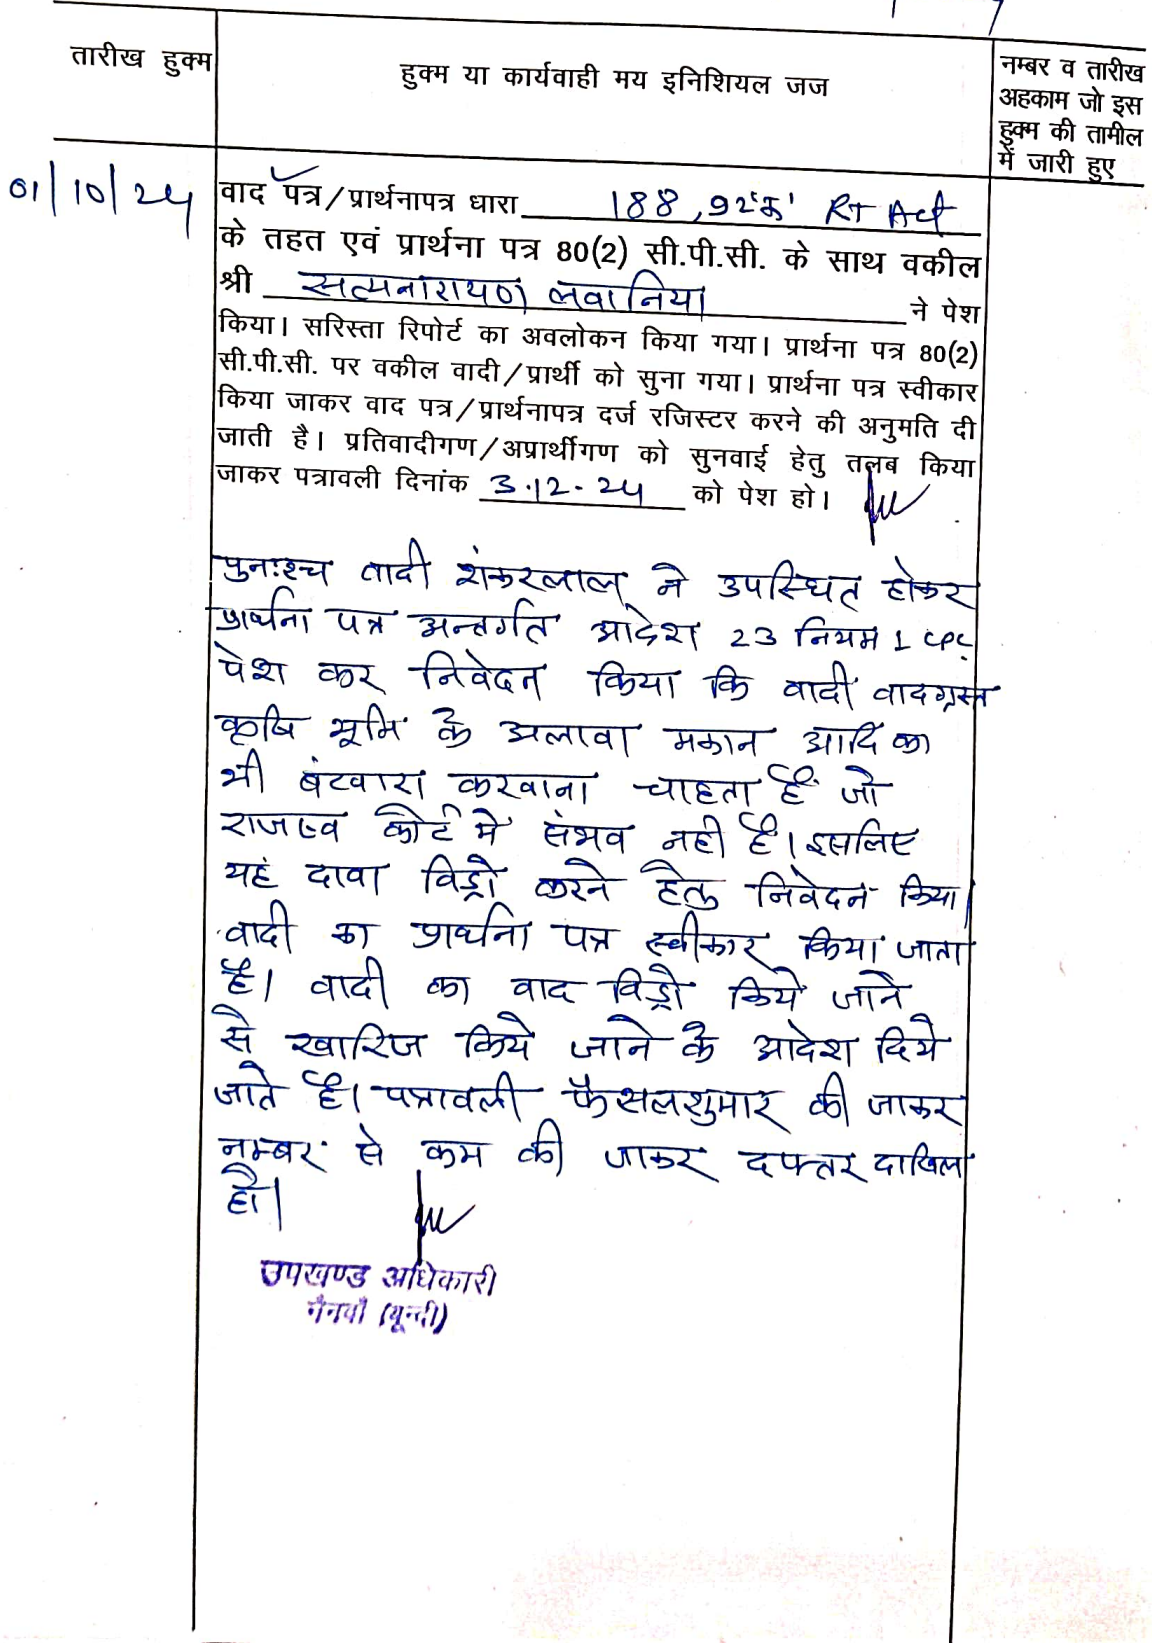 तारीख हुक्म
हुक्म या कार्यवाही मय इनिशियल जज
नम्बर व तारीख
अहकाम जो इस
हुक्म की तामील
में जारी हुए
01/10/24
वाद पत्र/प्रार्थनापत्र धारा 188, 92'क' RT Act
के तहत एवं प्रार्थना पत्र 80(2) सी.पी.सी. के साथ वकील
श्री सत्यनारायण लवानिया ने पेश
किया। सरिस्ता रिपोर्ट का अवलोकन किया गया। प्रार्थना पत्र 80(2)
सी.पी.सी. पर वकील वादी/प्रार्थी को सुना गया। प्रार्थना पत्र स्वीकार
किया जाकर वाद पत्र/प्रार्थनापत्र दर्ज रजिस्टर करने की अनुमति दी
जाती है। प्रतिवादीगण/अप्रार्थीगण को सुनवाई हेतु तलब किया
जाकर पत्रावली दिनांक 3.12.24 को पेश हो।
पुनःश्च वादी शंकरलाल ने उपस्थित होकर
प्रार्थना पत्र अन्तर्गत आदेश 23 नियम 1 CPC
पेश कर निवेदन किया कि वादी वादग्रस्त
कृषि भूमि के अलावा मकान आदि का
भी बंटवारा करवाना चाहता है जो
राजस्व कोर्ट मे संभव नही है। इसलिए
यह दावा विड्रो करने हेतु निवेदन किया।
वादी का प्रार्थना पत्र स्वीकार किया जाता
है। वादी का वाद विड्रो किये जाने
से खारिज किये जाने के आदेश दिये
जाते है। पत्रावली फैसलशुमार की जाकर
नम्बर से कम की जाकर दफ्तर दाखिल
हो।
उपखण्ड अधिकारी
नैनवाँ (बून्दी)